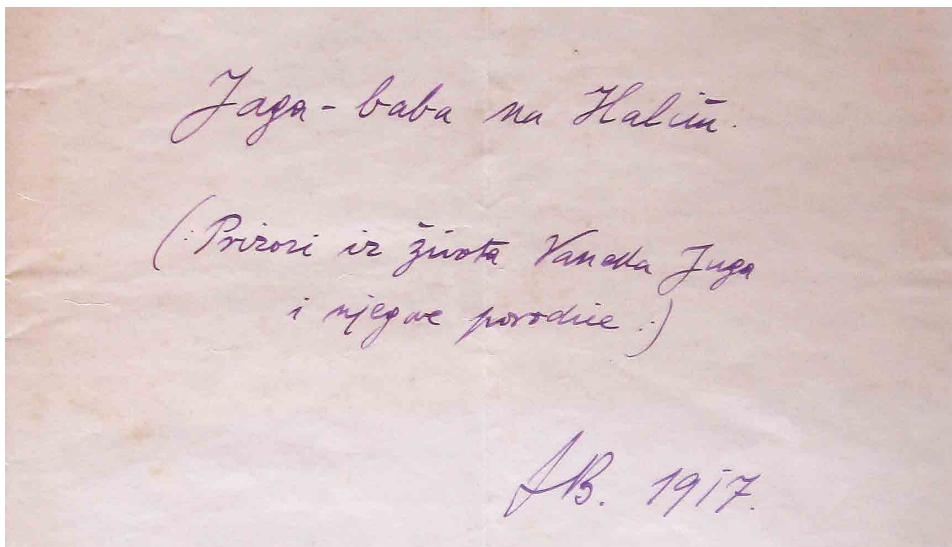 Jaga-baba na
(: Prizori iz života Vaneka Juga
i njegove porodice :)
1917.